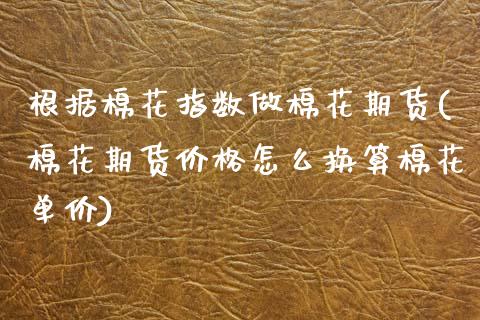 根据棉花指数做棉花期货(
棉花期货价格怎么换算棉花
单价)